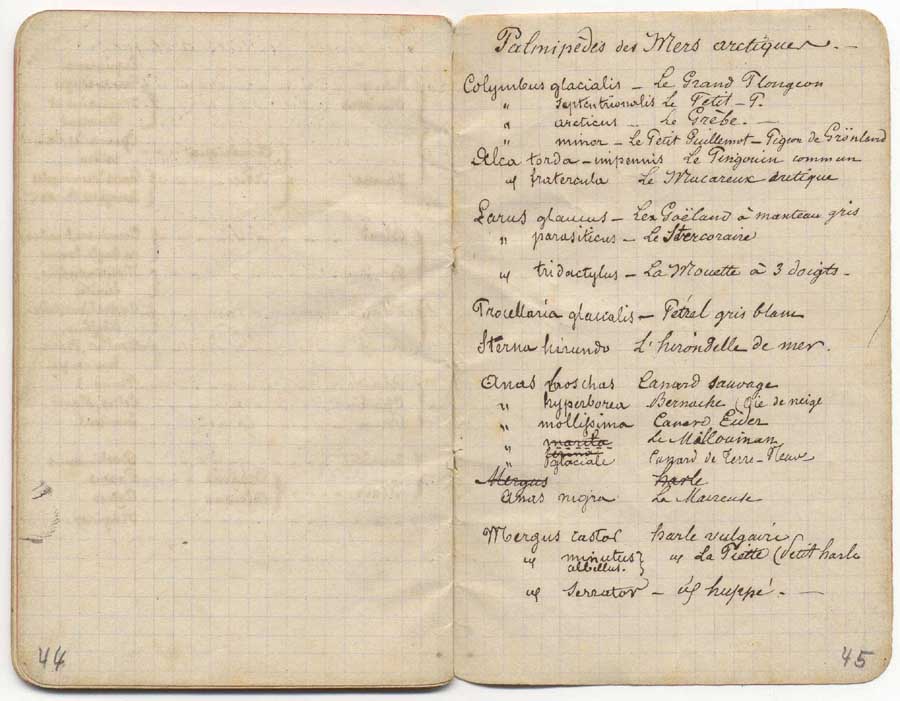 44
Palmipèdes des Mers arctiques. —
Colymbus glacialis — Le Grand Plongeon
" septentrionalis Le Petit — P.
" arcticus ... Le Grèbe. —
" minor — Le Petit Guillemot — Pigeon de Grönland
Alca torda — impennis Le Pingouin commun
" fratercula Le Macareux arctique
Larus glaucus — Le Goëland à manteau gris
" parasiticus — Le Stercoraire
" tridactylus — La Mouette à 3 doigts —
Procellaria glacialis — Pétrel gris blanc
Sterna hirundo L'hirondelle de mer.
Anas boschas Canard sauvage
" hyperborea Bernache (Oie de neige
" mollissima Canard Eider
" marila Le Millouinan
" glaciale Canard de Terre-Neuve
Mergus harle
Anas nigra La Macreuse
Mergus castor harle vulgaire
" minutus } " La Piette (Petit harle
albellus. }
" Serrator — " huppé. —
45